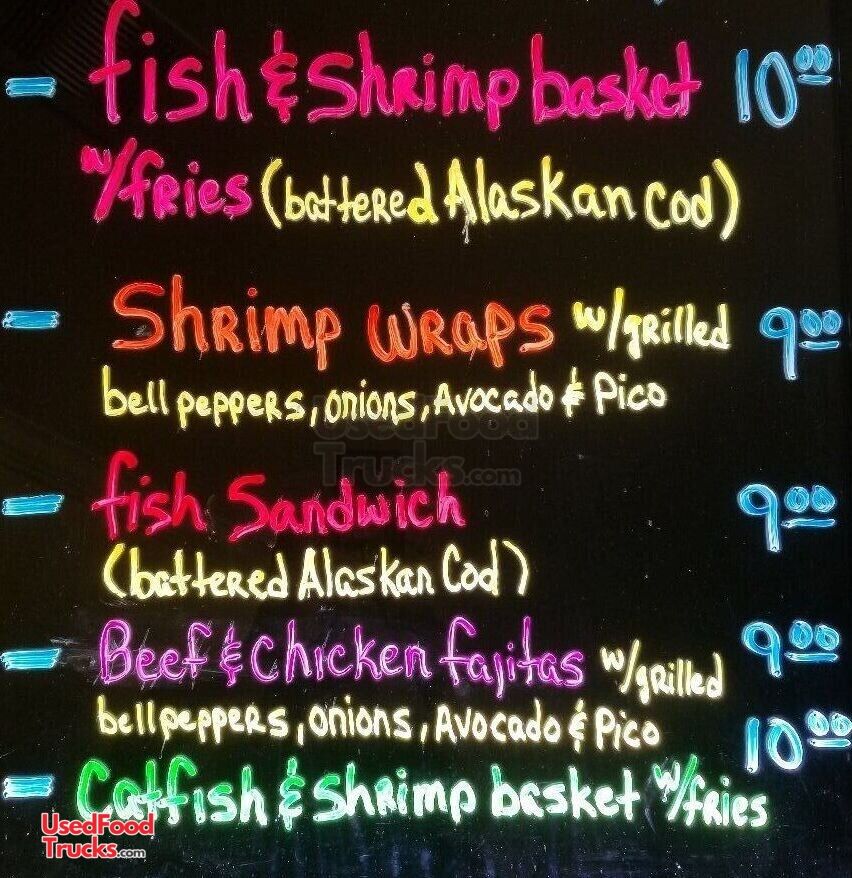 - fish & Shrimp basket 10.00
w/fries (battered Alaskan Cod)
- Shrimp wraps w/grilled 9.00
bell peppers, onions, Avocado & Pico
UsedFood
Trucks.com
- fish Sandwich 9.00
(battered Alaskan Cod)
- Beef & Chicken fajitas w/grilled 9.00
bell peppers, onions, Avocado & Pico
10.00
- Catfish & Shrimp basket w/fries
UsedFood
Trucks.com